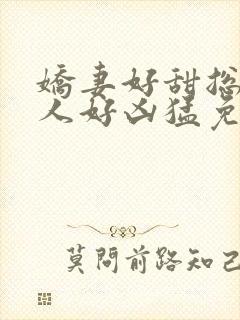 嬌妻好甜總
人好凶猛免
莫問前路知己